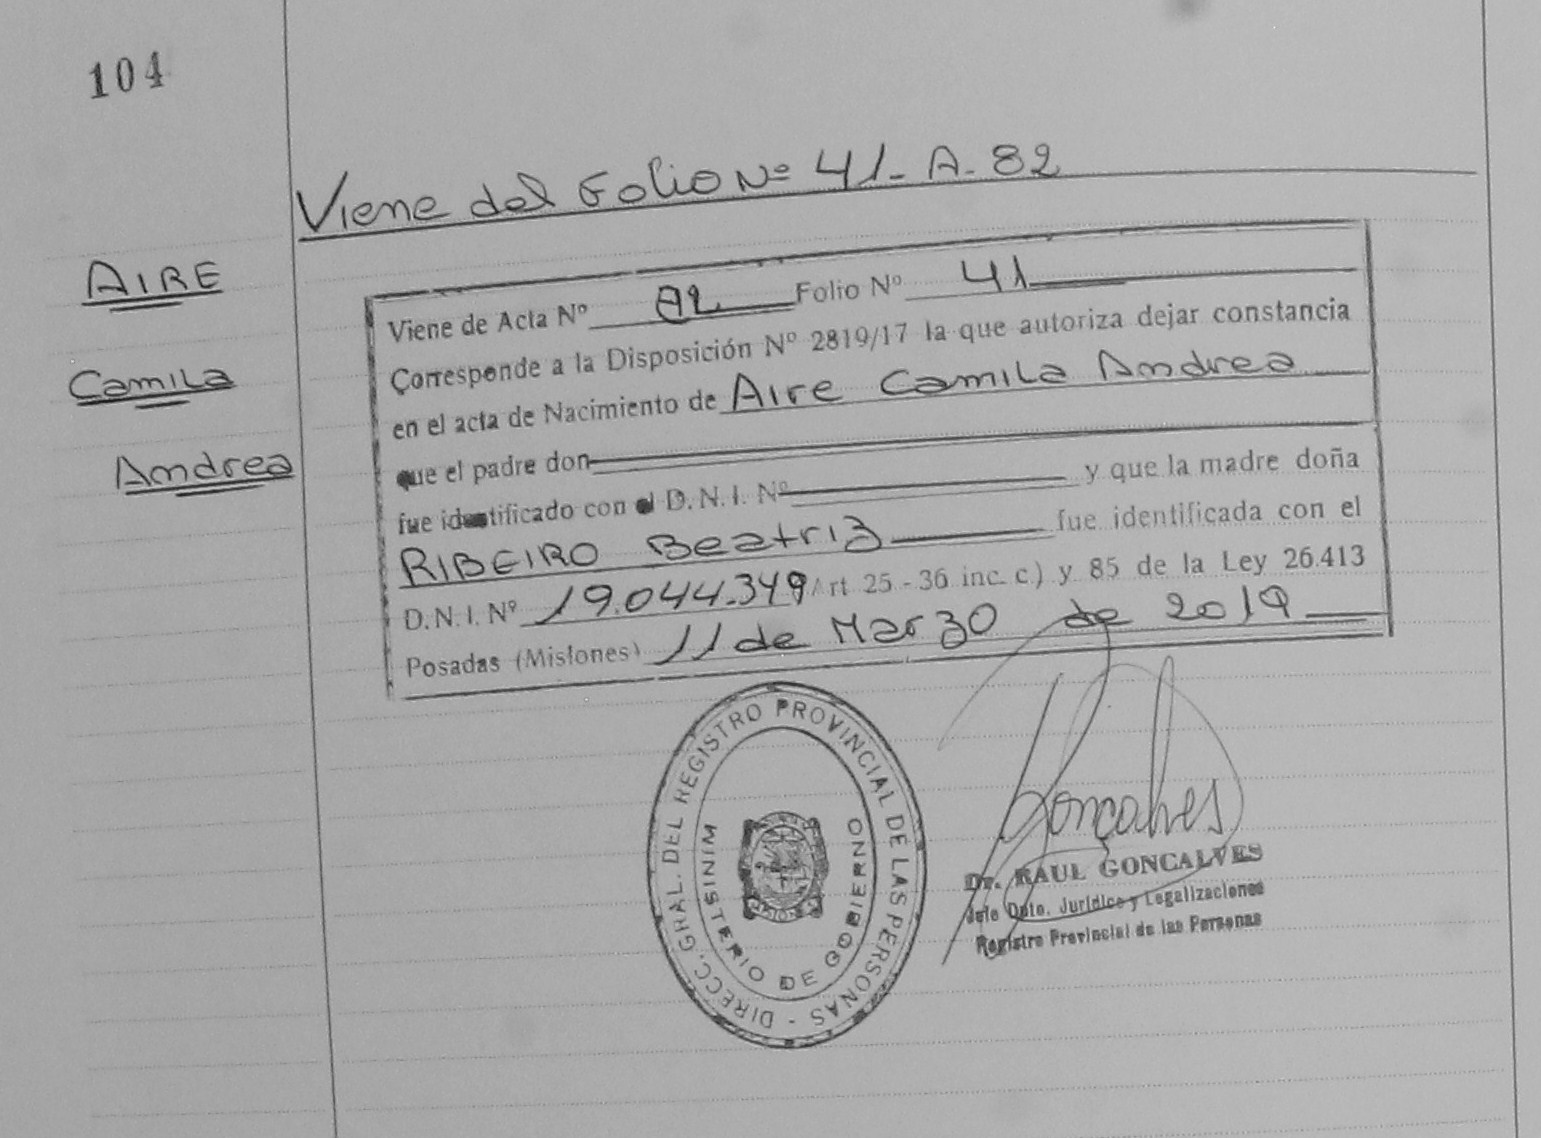 104
Viene del Folio Nº 41-A-82
AIRE
Camila
Andrea
Viene de Acta Nº 82 Folio Nº 41
Corresponde a la Disposición Nº 2819/17 la que autoriza dejar constancia
en el acta de Nacimiento de Aire Camila Andrea
que el padre don
fue identificado con el D.N.I. Nº y que la madre doña
RIBEIRO Beatriz fue identificada con el
D.N.I. Nº 19.044.349 Art 25-36 inc. c) y 85 de la Ley 26.413
Posadas (Misiones) 11 de Marzo de 2019
DIRECC. GRAL. DEL REGISTRO PROVINCIAL DE LAS PERSONAS -
MINISTERIO DE GOBIERNO
Goncalves
Dr. RAUL GONCALVES
Jefe Dpto. Jurídico y Legalizaciones
Registro Provincial de las Personas